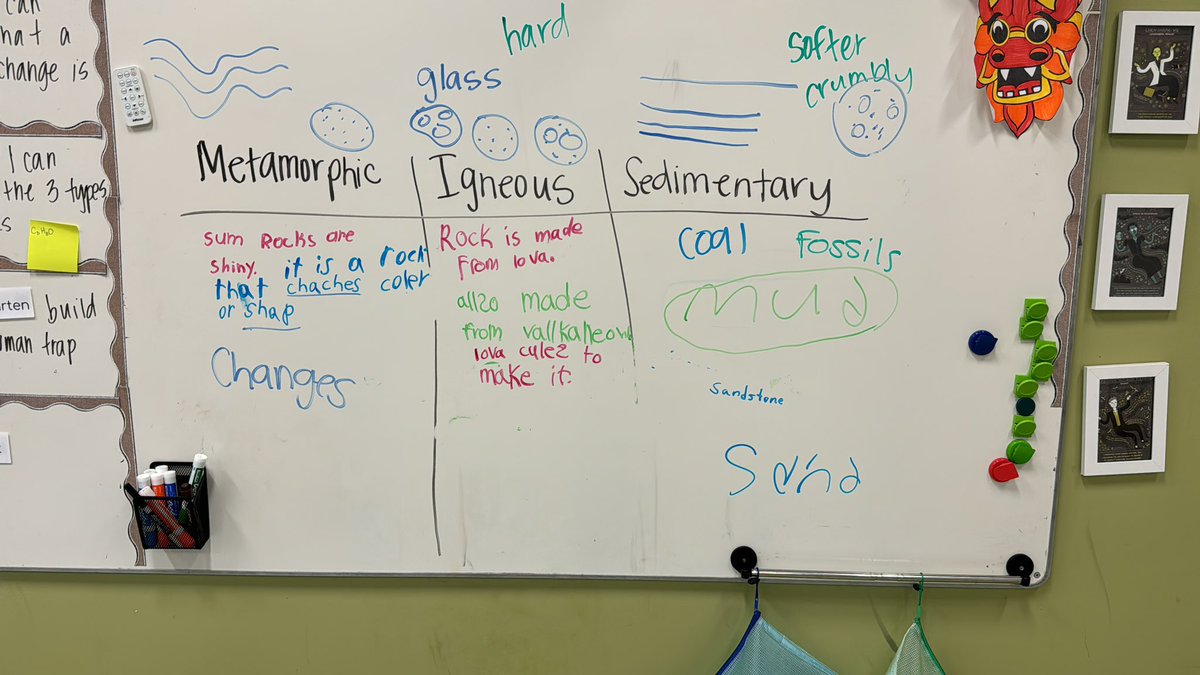 can
hat a
change is
I can
the 3 types
s
C₆H₈O
rten
build
man trap
hard
glass
softer
crumbly
Metamorphic
Igneous
Sedimentary
sum Rocks are
shiny. it is a rock
that chaches coler
or shap
Changes
Rock is made
from lova.
allzo made
from vallkaneow
lova culez to
make it.
coal
Fossils
mud
Sandstone
Sand